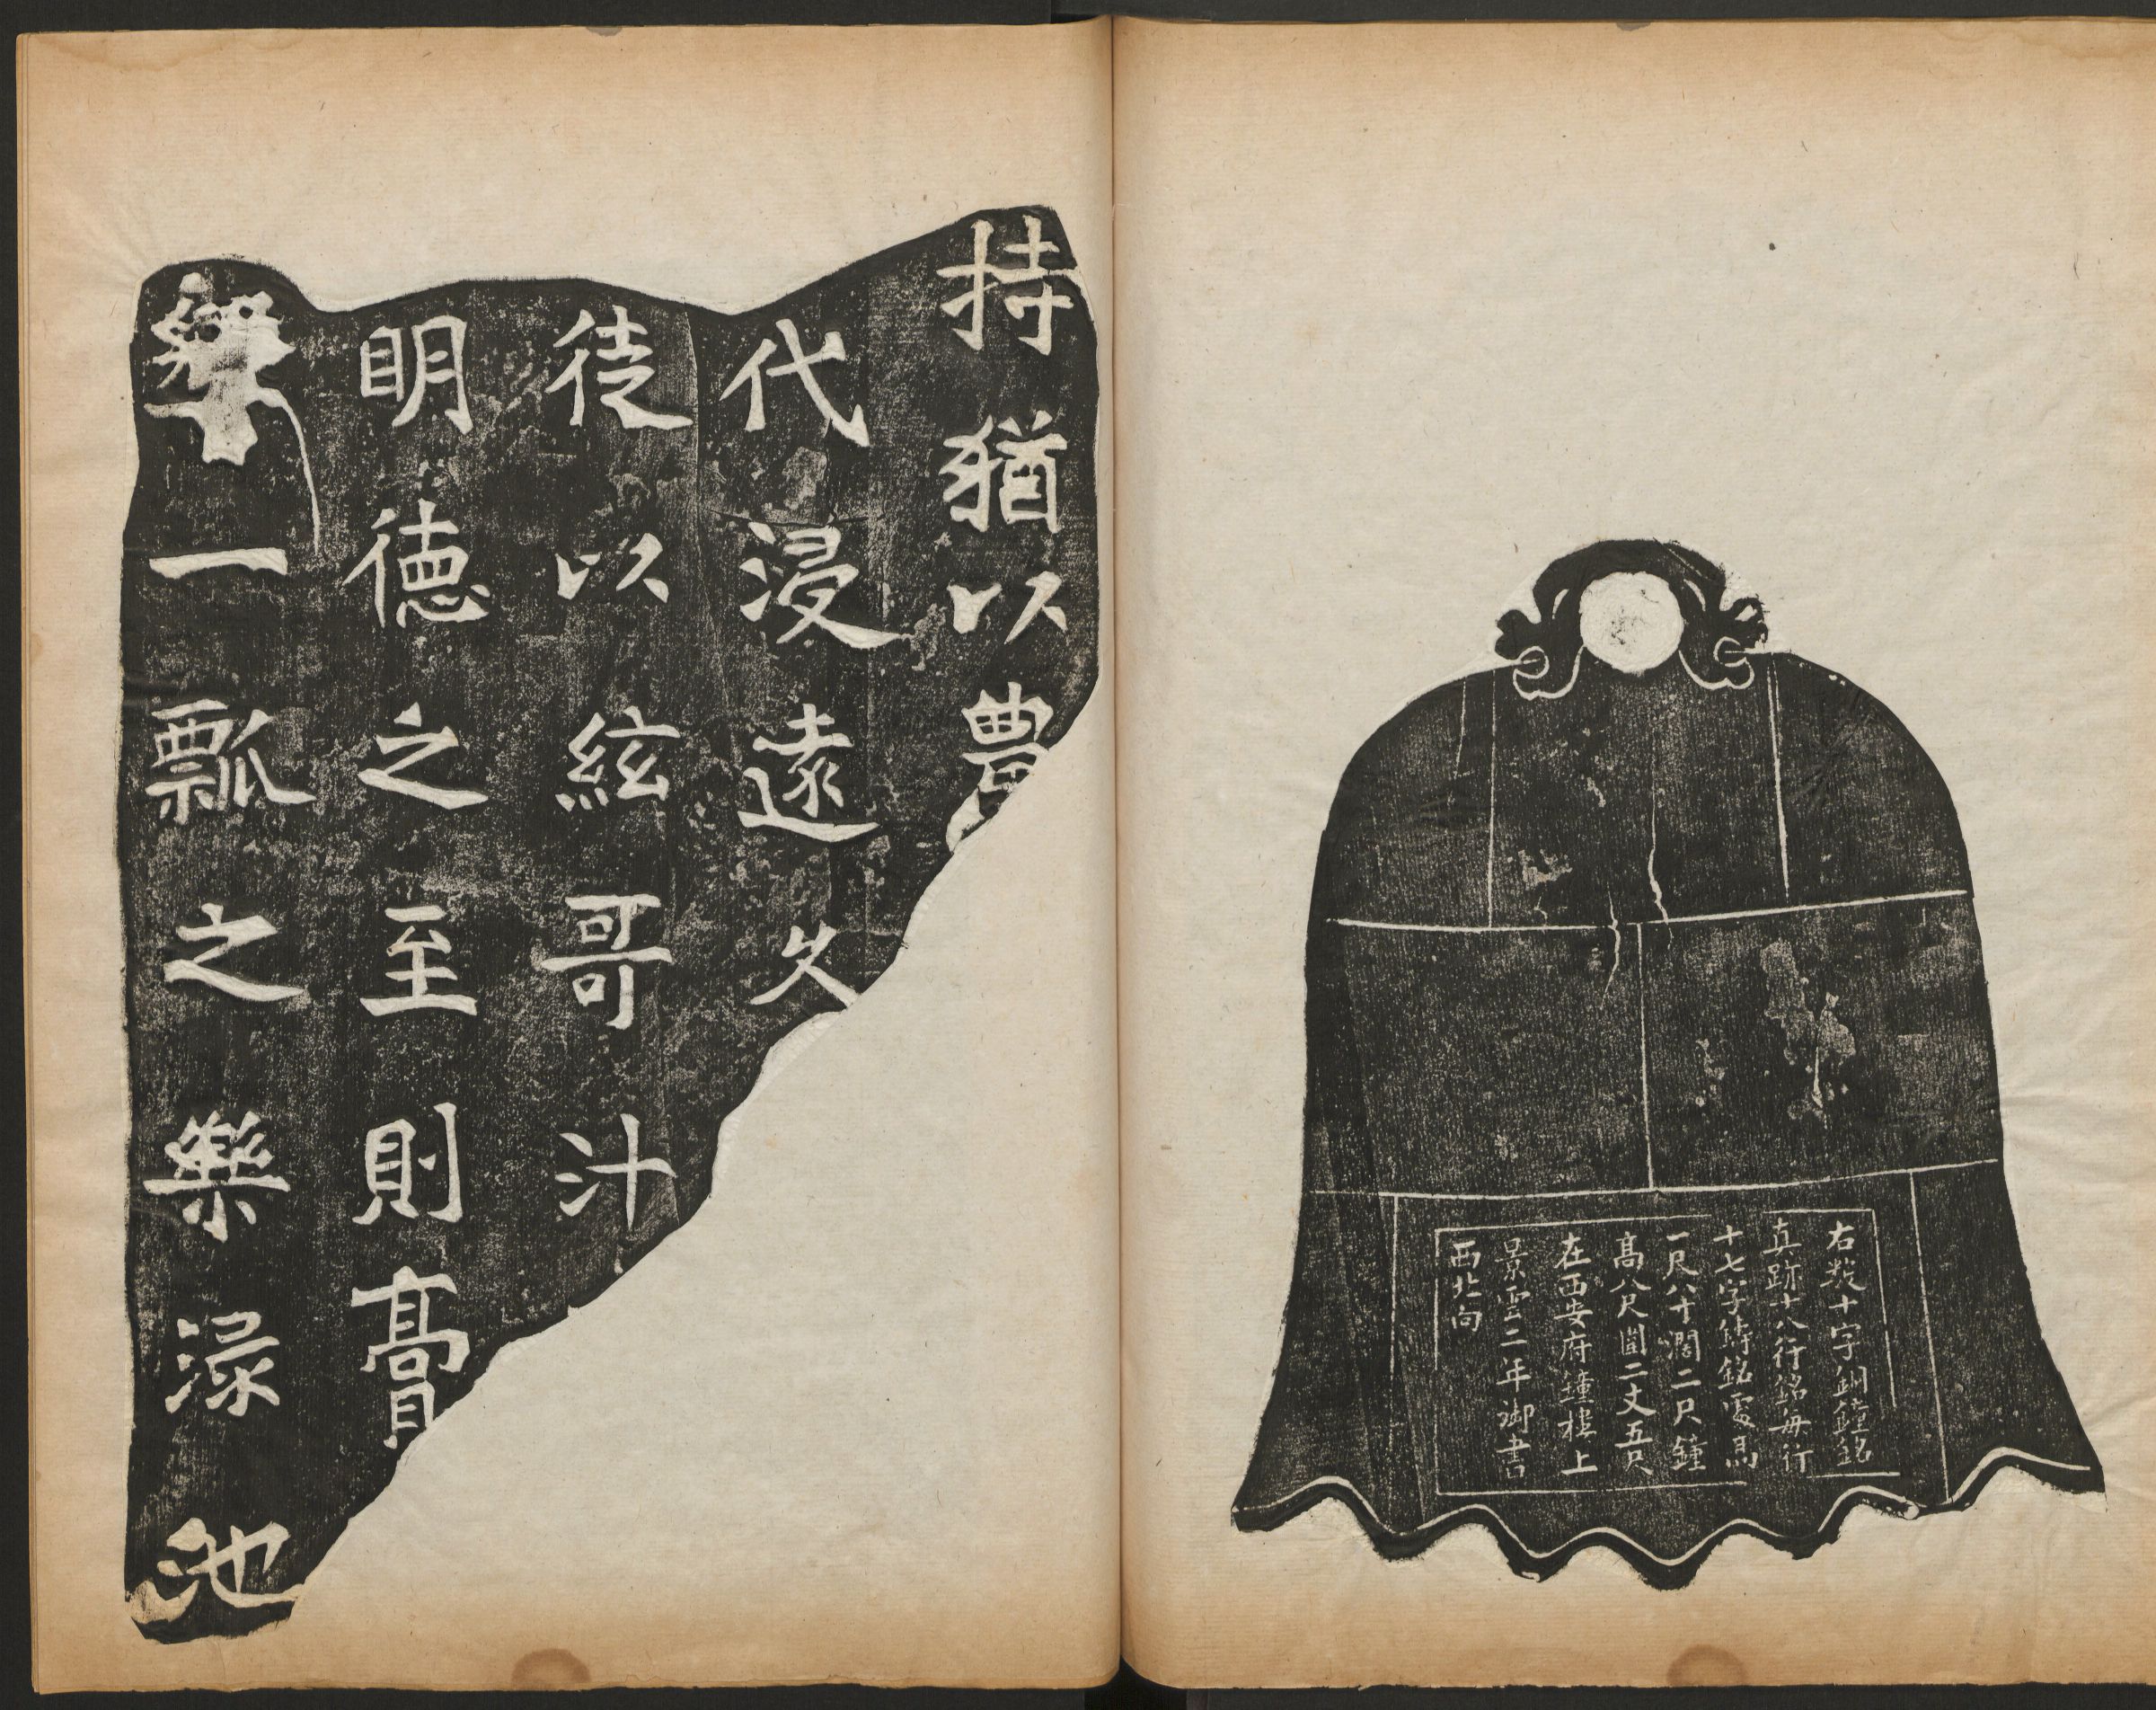 右數十字銅鐘銘
真跡十八行銘每行
十七字鑄銘處高
一尺八寸濶二尺鐘
高八尺圍二丈五尺
在西安府鐘樓上
景雲二年御書
西北向
持猶以豊
代浸遠久
徒以絃哥汁
明德之至則高月
一瓢之樂渌池